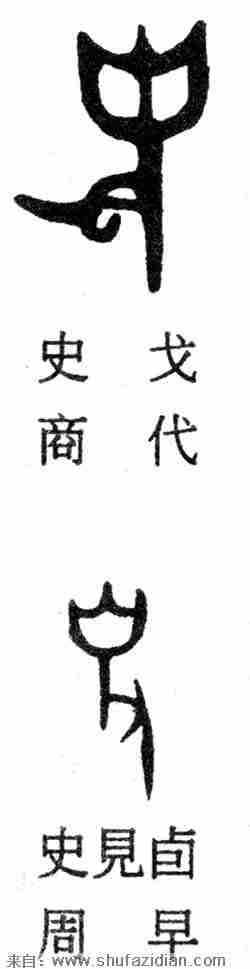 史
史 戈
商 代
史
史見卣
周 早
来自：www.shufazidian.com